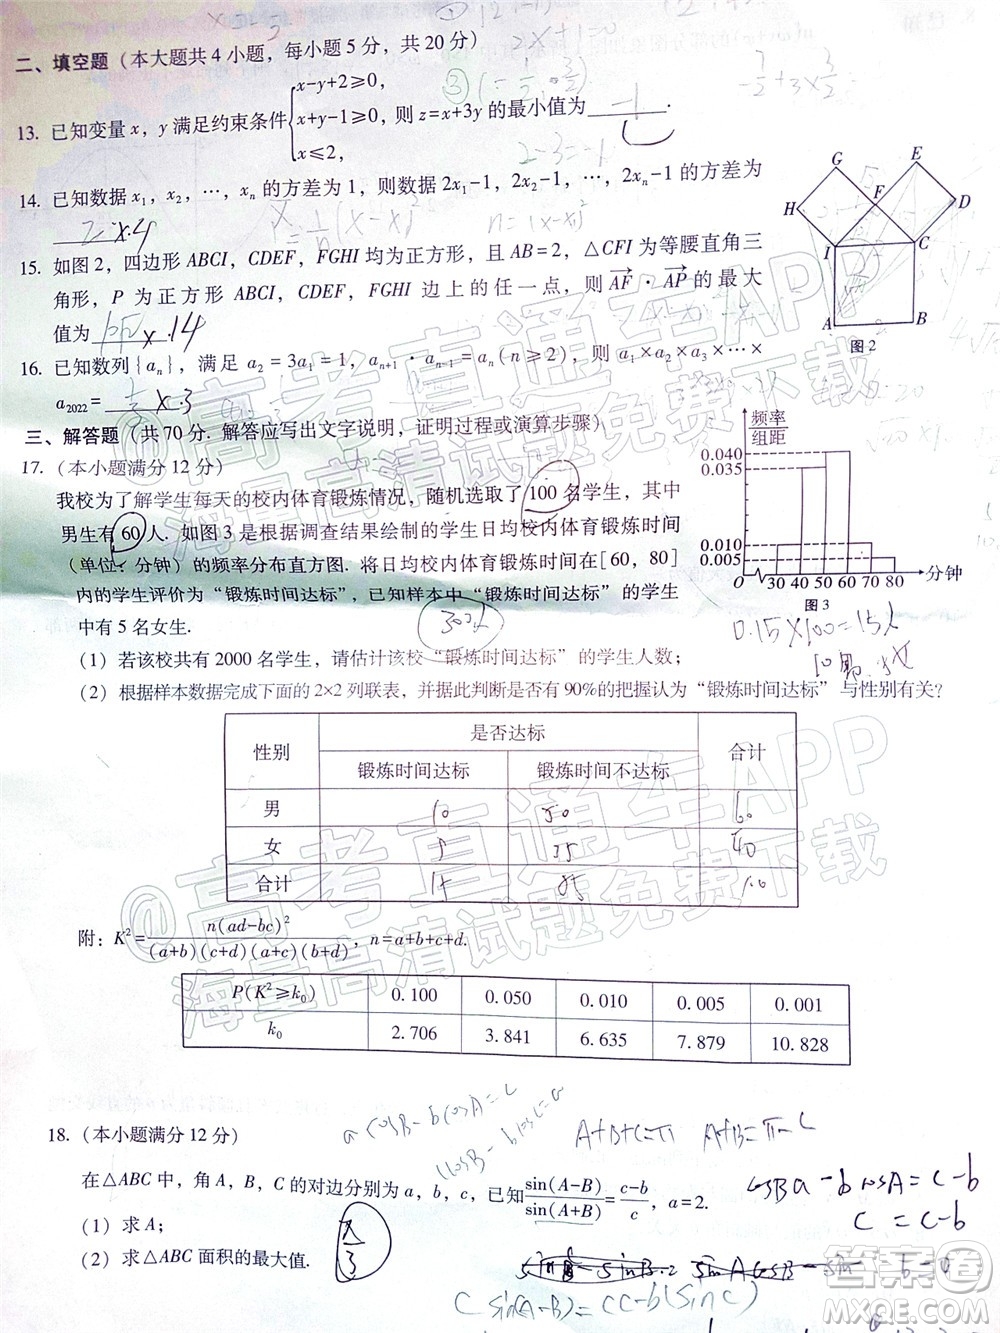 二、填空题（本大题共 4 小题，每小题 5 分，共 20 分）
13. 已知变量 x，y 满足约束条件{x-y+2≥0, x+y-1≥0, x≤2, 则 z=x+3y 的最小值为 -1 .
14. 已知数据 x₁，x₂，…，xₙ 的方差为 1，则数据 2x₁-1，2x₂-1，…，2xₙ-1 的方差为
15. 如图 2，四边形 ABCI，CDEF，FGHI 均为正方形，且 AB=2，△CFI 为等腰直角三
角形，P 为正方形 ABCI，CDEF，FGHI 边上的任一点，则 AF · AP 的最大
值为
16. 已知数列{aₙ}，满足 a₂=3a₁=1，aₙ₊₁·aₙ₋₁=aₙ(n≥2)，则 a₁×a₂×a₃×…×
a₂₀₂₂=
G E F D H I C A B
图 2
三、解答题（共 70 分. 解答应写出文字说明，证明过程或演算步骤）
17.（本小题满分 12 分）
我校为了解学生每天的校内体育锻炼情况，随机选取了 100 名学生，其中
男生有 60 人. 如图 3 是根据调查结果绘制的学生日均校内体育锻炼时间
（单位：分钟）的频率分布直方图. 将日均校内体育锻炼时间在[60，80]
内的学生评价为“锻炼时间达标”，已知样本中“锻炼时间达标”的学生
中有 5 名女生.
频率
组距
0.040
0.035
0.010
0.005
O 30 40 50 60 70 80 分钟
图 3
300人
0.15×100=15人
（1）若该校共有 2000 名学生，请估计该校“锻炼时间达标”的学生人数；
（2）根据样本数据完成下面的 2×2 列联表，并据此判断是否有 90%的把握认为“锻炼时间达标”与性别有关？
性别 是否达标 合计
锻炼时间达标 锻炼时间不达标
男 10 50 60
女 5 35 40
合计 15 85 100
附：K²=n(ad-bc)²/(a+b)(c+d)(a+c)(b+d)，n=a+b+c+d.
P(K²≥k₀) 0.100 0.050 0.010 0.005 0.001
k₀ 2.706 3.841 6.635 7.879 10.828
a cosB - b cosA = c
A+B+C=π A+B=π-C
18.（本小题满分 12 分）
在△ABC 中，角 A，B，C 的对边分别为 a，b，c，已知sin(A-B)/sin(A+B)=(c-b)/c，a=2.
cosB a - b cosA = c-b
（1）求 A；
c = c-b
（2）求△ABC 面积的最大值.
π/3
c sin(A-B) = (c-b)(sin C)
@高考直通车APP
海量高清试题免费下载
@高考直通车APP
海量高清试题免费下载
答案圈
MXQE.COM